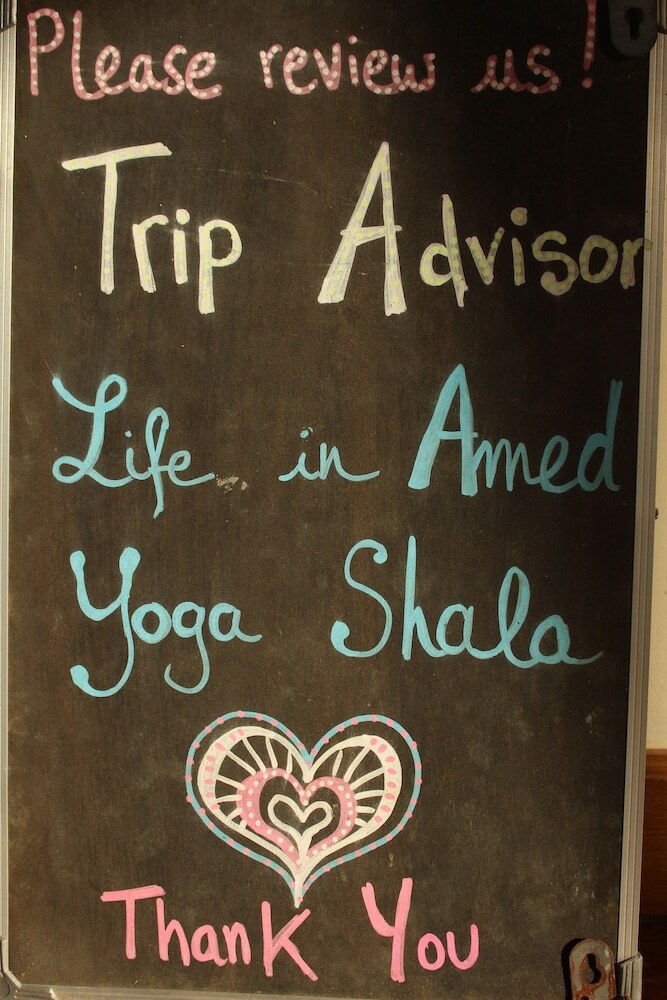 Please review us!
Trip Advisor
Life in Amed
Yoga Shala
Thank You